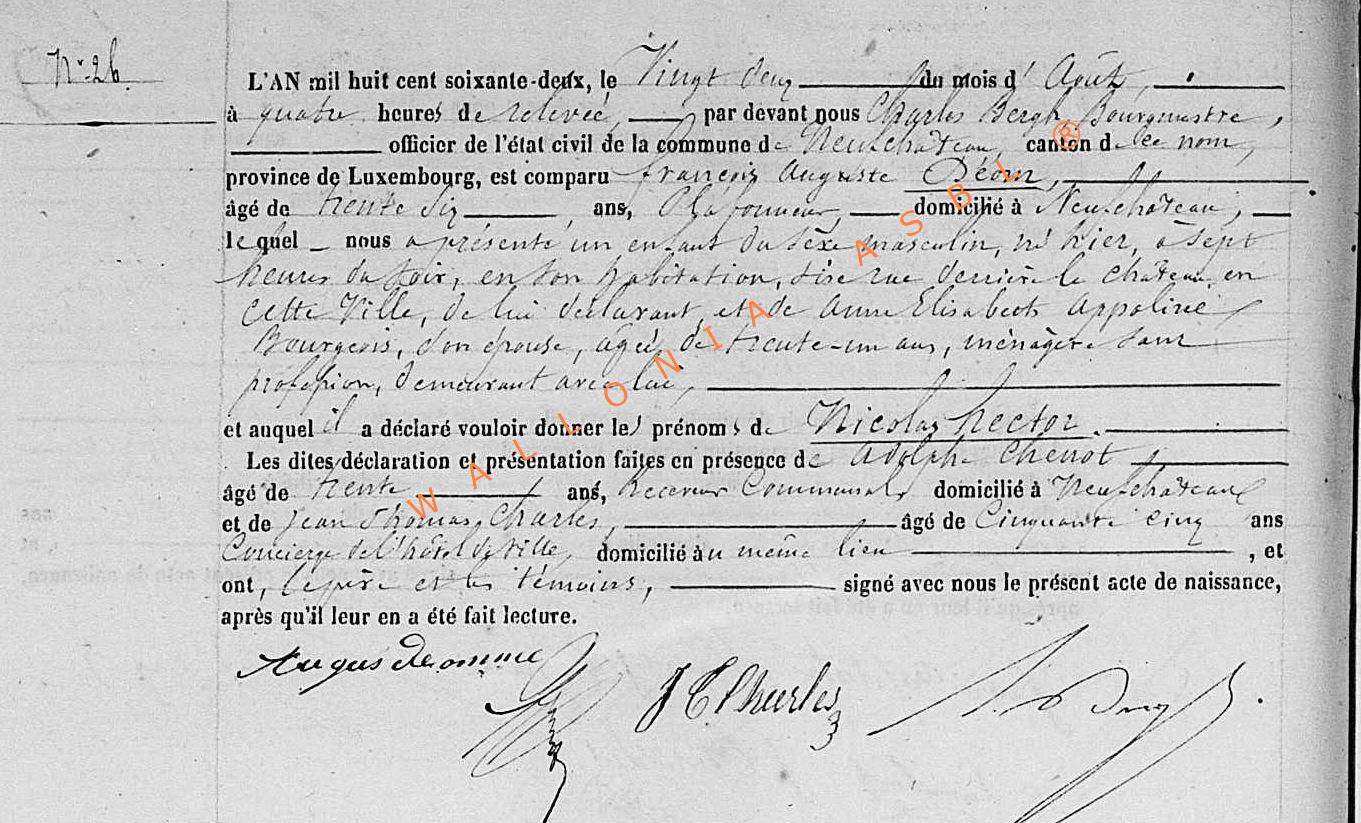 N° 26.
L'AN mil huit cent soixante-deux, le Vingt deux du mois d'Août,
à quatre heures de relevée, par devant nous Charles Bergh Bourgmestre,
officier de l'état civil de la commune de Neufchâteau, canton de ce nom,
province de Luxembourg, est comparu françois Auguste Déom,
âgé de trente six ans, Plafonneur, domicilié à Neufchâteau,
lequel nous a présenté un enfant du sèxe masculin, né hier, à sept
heures du soir, en son habitation, sise rue derrière le château, en
cette Ville, de lui déclarant, et de Anne Elisabeth Appoline
Bourgeois, son épouse, agée de trente-un ans, ménagère sans
profession, demeurant avec lui,
et auquel il a déclaré vouloir donner les prénoms de Nicolas hector.
Les dites déclaration et présentation faites en présence de Adolphe Chenot,
âgé de trente ans, Receveur Communal, domicilié à Neufchâteau
et de Jean Thomas Charles, âgé de Cinquante cinq ans
Concierge de l'hôtel de Ville, domicilié au même lieu, et
ont, le père et les témoins, signé avec nous le présent acte de naissance,
après qu'il leur en a été fait lecture.
J T Charles
WALLONIA ASBL ®